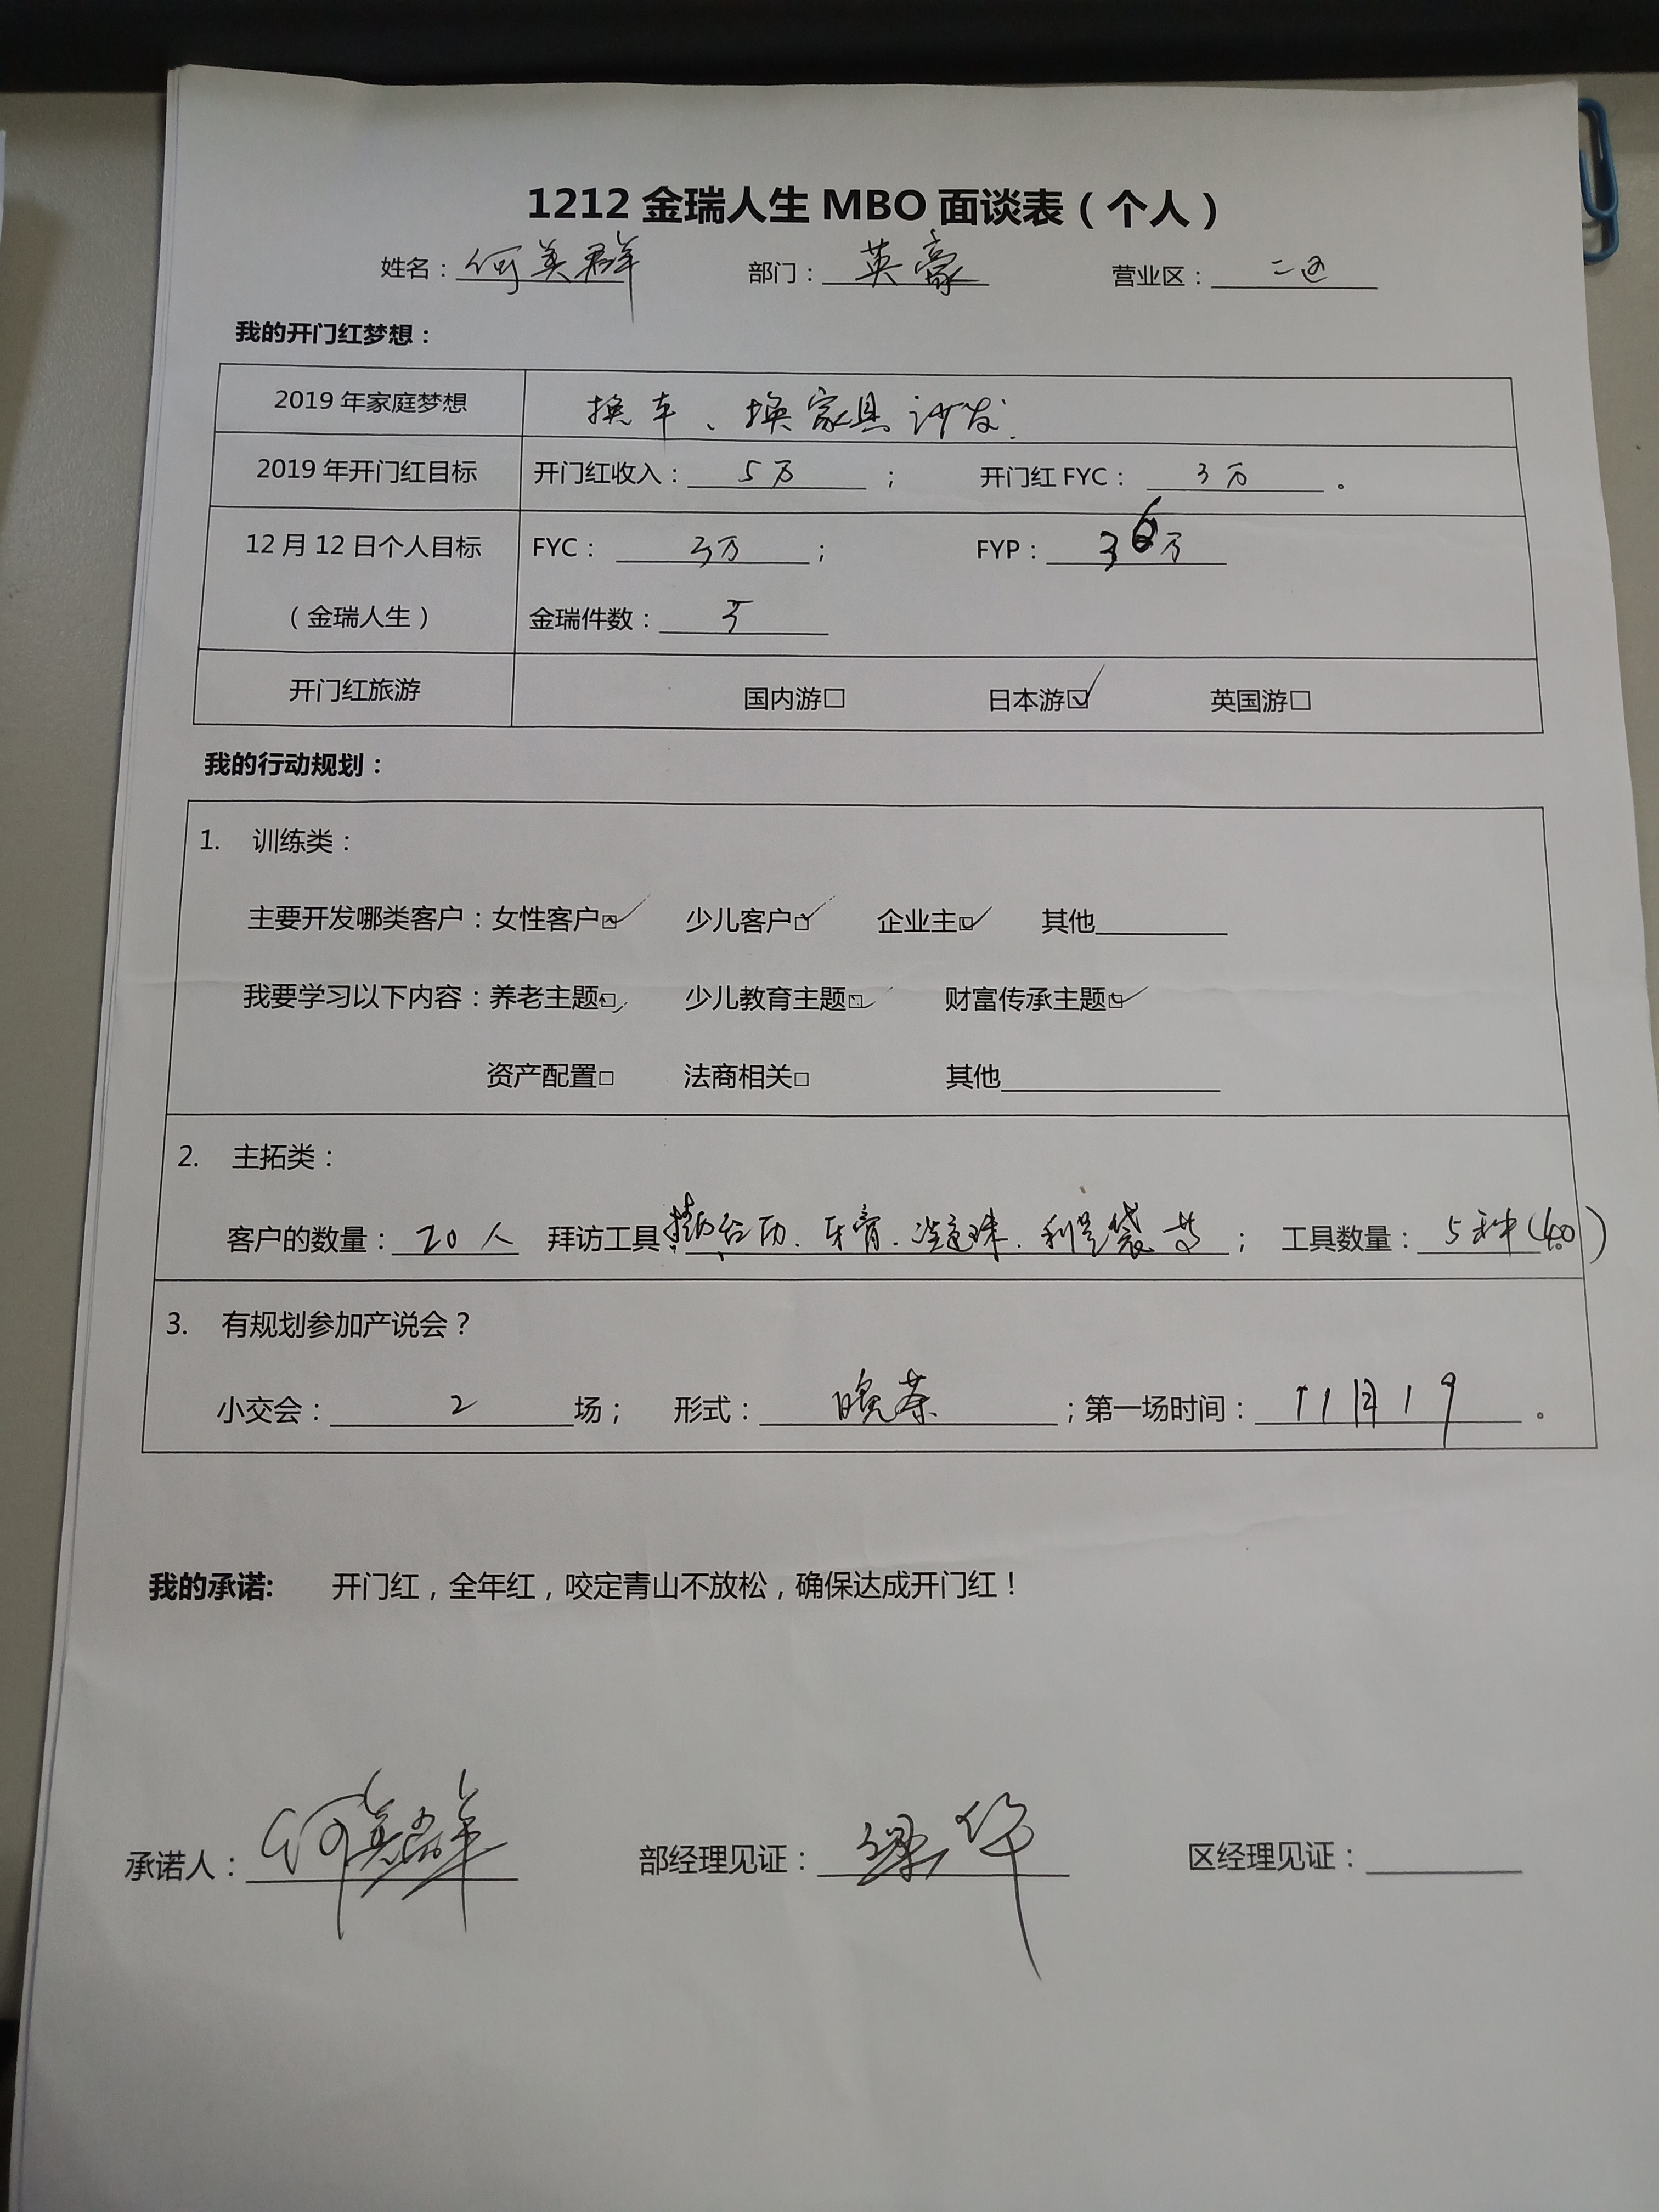 1212 金瑞人生 MBO 面谈表（个人）
姓名：何美群 部门：英豪 营业区：二区
我的开门红梦想：
2019 年家庭梦想 换车、换家具沙发.
2019 年开门红目标 开门红收入：5万； 开门红 FYC：3万。
12 月 12 日个人目标 FYC：3万； FYP：36万
（金瑞人生） 金瑞件数：5
开门红旅游 国内游□ 日本游☑ 英国游□
我的行动规划：
1. 训练类：
主要开发哪类客户：女性客户☑ 少儿客户☑ 企业主☑ 其他
我要学习以下内容：养老主题☑ 少儿教育主题☑ 财富传承主题☑
资产配置□ 法商相关□ 其他
2. 主拓类：
客户的数量：20人 拜访工具：台历、牙膏、利是袋等； 工具数量：5种(40)
3. 有规划参加产说会？
小交会：2场； 形式：晚茶；第一场时间：11月19。
我的承诺: 开门红，全年红，咬定青山不放松，确保达成开门红！
承诺人：何美群 部经理见证：梁华 区经理见证：